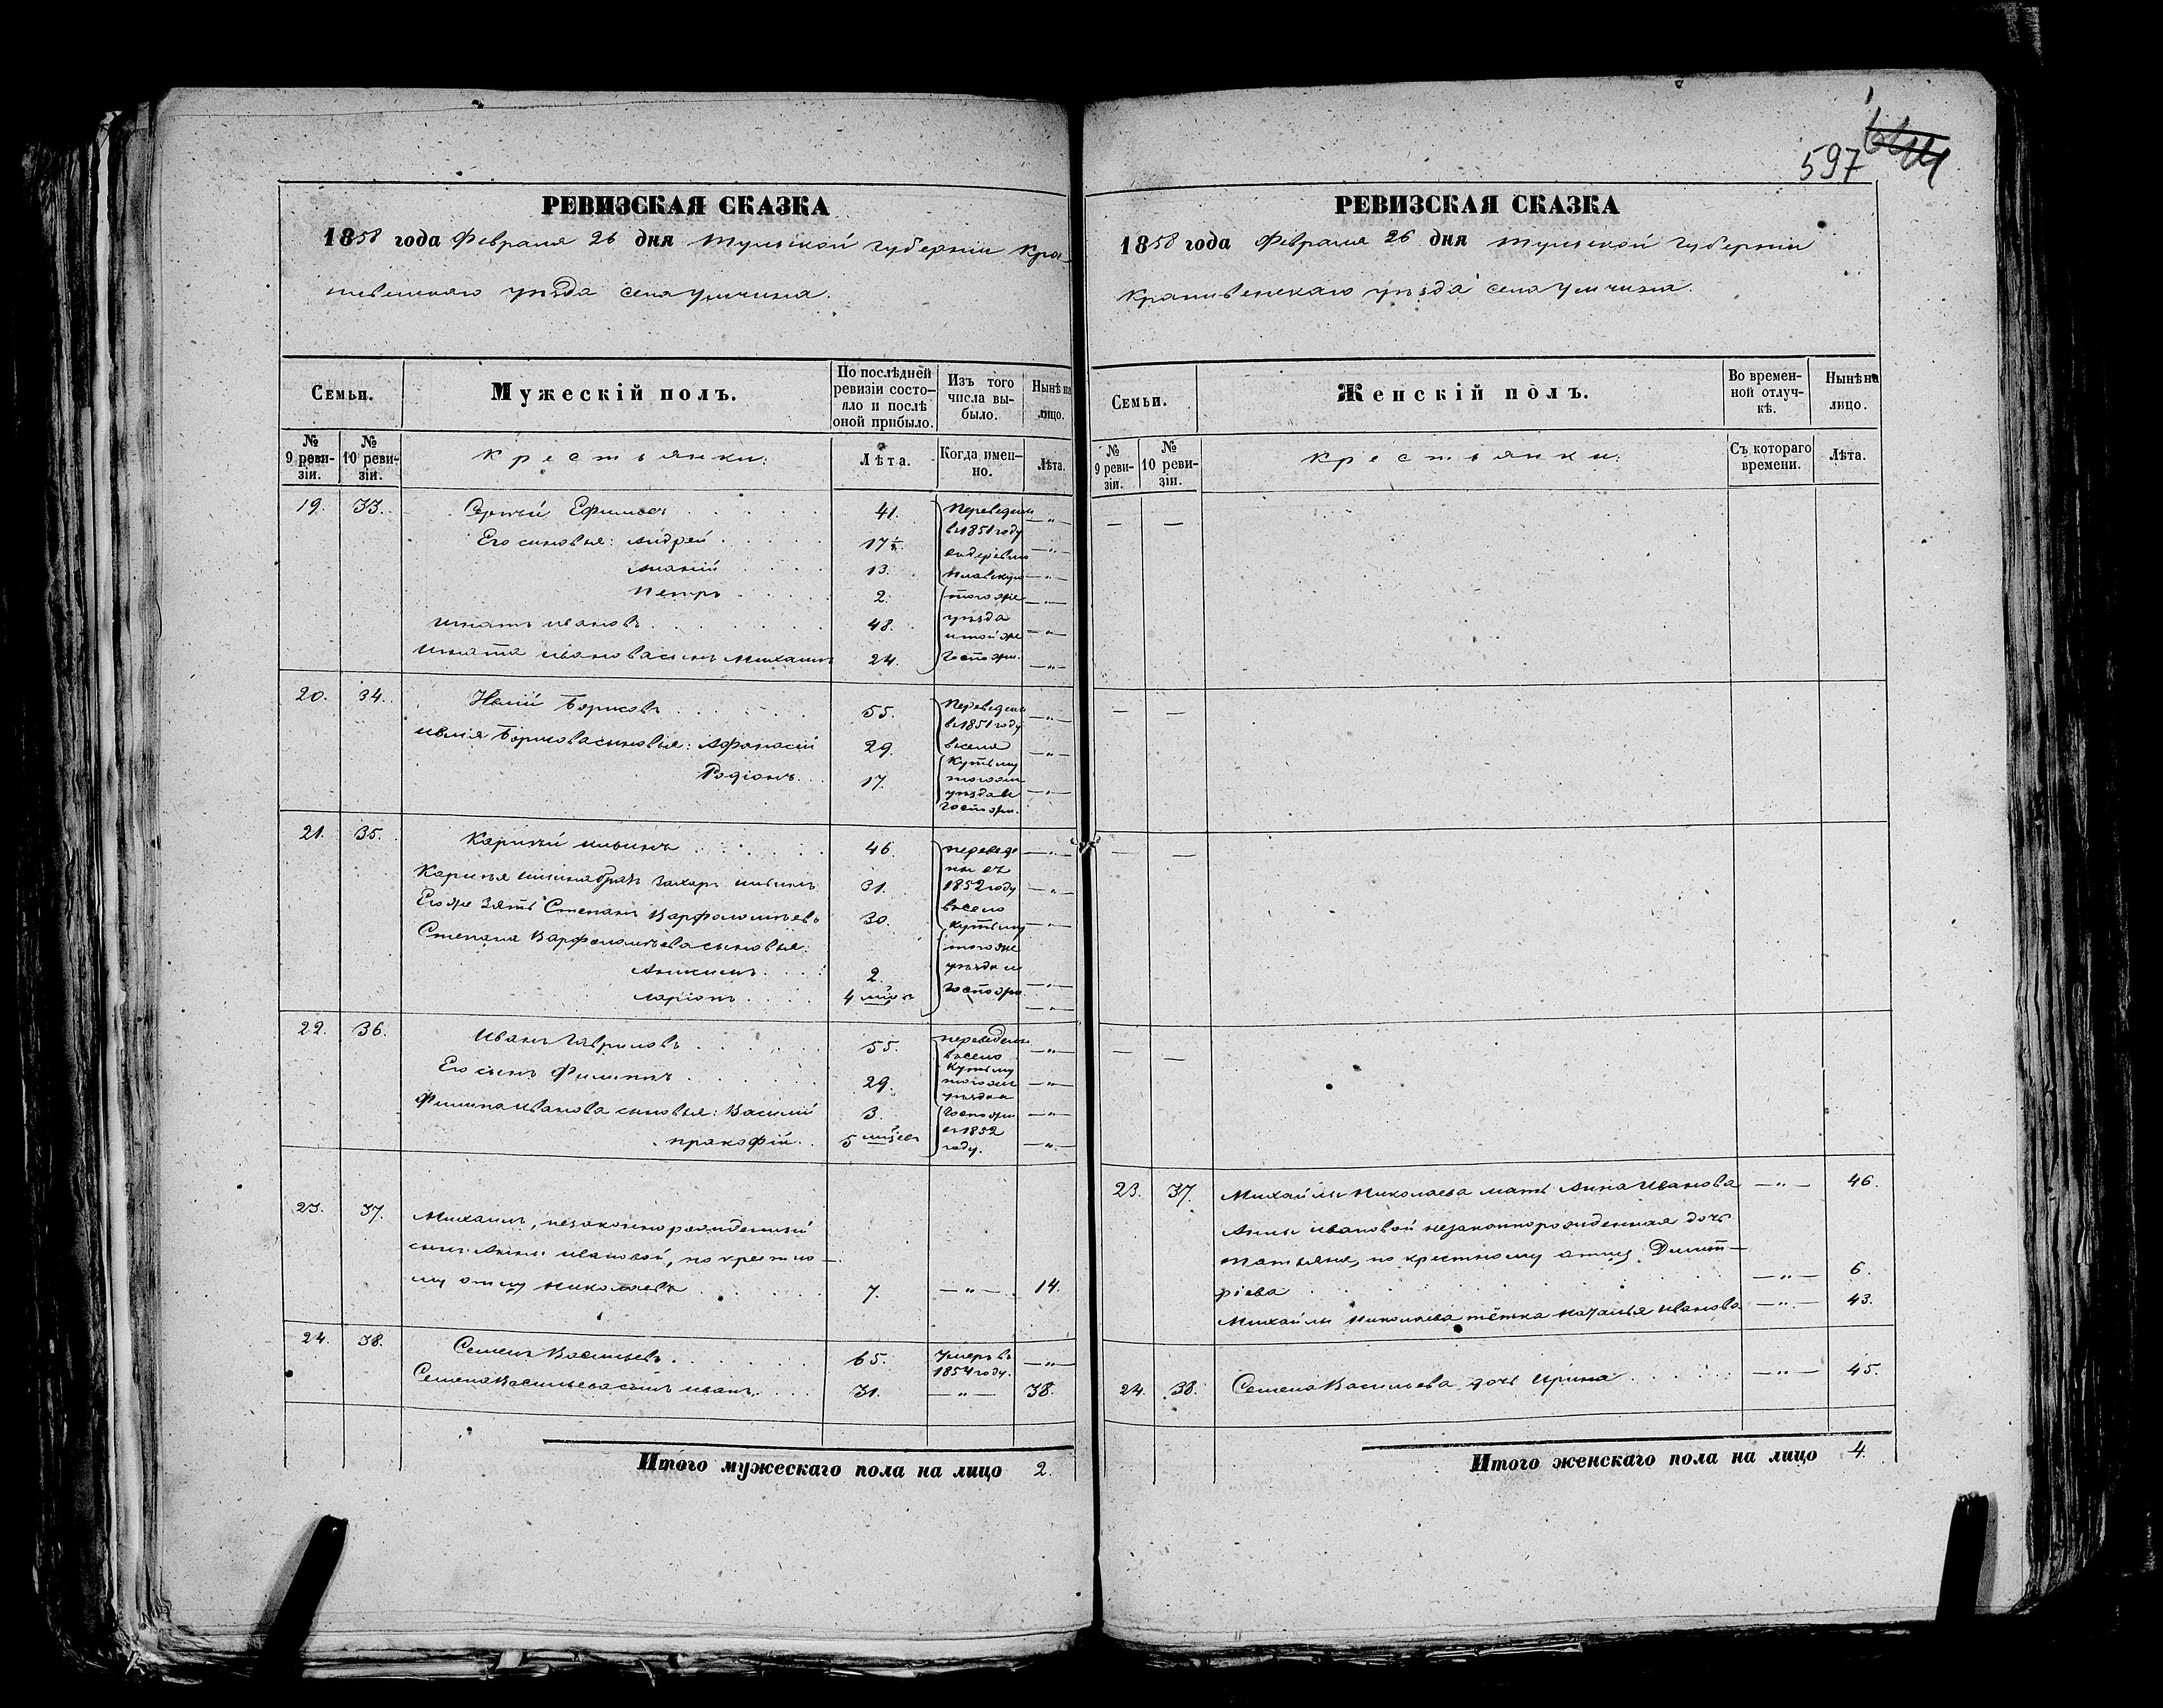 597
РЕВИЗСКАЯ СКАЗКА
1858 года Февраля 26 дня Тульской губернии Кра-
пивенскаго уѣзда села
Семьи.
Мужескій полъ.
По послѣдней ревизіи состо-
яло и послѣ оной прибыло.
Изъ того числа вы-
было.
Нынѣ на лицо.
№ 9 реви-
зіи.
№ 10 реви-
зіи.
Крестьянки:
Лѣта.
Когда имен-
но.
Лѣта.
19. 33. Ефимовъ 41. Переведены —"—
в 1851 году
Его сыновья: Андрей 17 ½. —"—
въ деревню
13. —"—
Петръ 2. того же —"—
уѣзда
Игнатъ Ивановъ 48. —"—
Игната Иванова сынъ Михаилъ 24. госпожи. —"—
20. 34. Борисовъ 55. Переведены —"—
в 1851 году
Борисова сыновья: Афанасій 29. —"—
Родіонъ 17. —"—
уѣзда
госпожи.
21. 35. 46. переведе- —"—
ны въ
брат Захаръ 31. 1852 году —"—
въ село
Его же зять Степанъ Варфоломѣевъ 30. —"—
Степана Варфоломѣева сыновья: того же
2. уѣзда и —"—
Ларіонъ 4 госпожи. —"—
22. 36. Иванъ Гавриловъ 55. переведены —"—
въ село
Его сынъ Филиппъ 29. —"—
уѣзда
Филиппа Иванова сыновья: Василій 3. госпожи —"—
въ 1852
Прокофій. 5 году. —"—
23. 37. Михаилъ, незаконнорожденный
сынъ Анны Ивановой, по крестно-
му отцу Николаевъ 7. —"— 14.
24. 38. Семенъ Васильевъ 65. Умеръ въ —"—
1854 году.
Семена Васильева сынъ Иванъ 31. —"— 38.
Итого мужескаго пола на лицо 2.
РЕВИЗСКАЯ СКАЗКА
1858 года Февраля 26 дня Тульской губерніи
Крапивенскаго уѣзда села
Семьи.
Женскій полъ.
Во времен-
ной отлуч-
кѣ.
Нынѣ на лицо.
№ 9 реви-
зіи.
№ 10 реви-
зіи.
Крестьянки:
Съ котораго времени.
Лѣта.
— —
— —
— —
— —
23. 37. Михайлы Николаева мать Анна Иванова —"— 46.
Анны Ивановой незаконнорожденная дочь
Татьяна, по крестному отцу Димит-
ріева —"— 6.
Михайлы Николаева тётка Наталья Иванова —"— 43.
24. 38. Семена Васильева дочь Ирина —"— 45.
Итого женскаго пола на лицо 4.